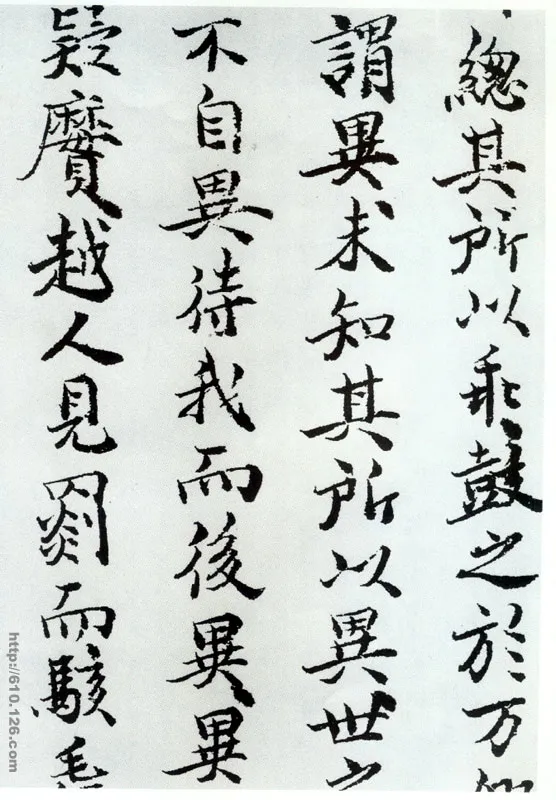 總其所以乖鼓之於万
謂異未知其所以異世之
不自異待我而後異異
疑黂越人見罽而駭
http://610.126.com